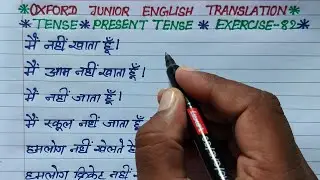 *OXFORD JUNIOR ENGLISH TRANSLATION*
*TENSE* PRESENT TENSE * EXERCISE-82*
मैं नहीं खाता हूँ।
मैं आम नहीं खाता हूँ।
मैं नहीं जाता हूँ।
मैं स्कूल नहीं जाता हूँ
हमलोग नहीं खेलते
हमलोग क्रिकेट नहीं